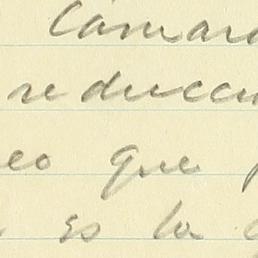 Camara
reducci
eo que
es la